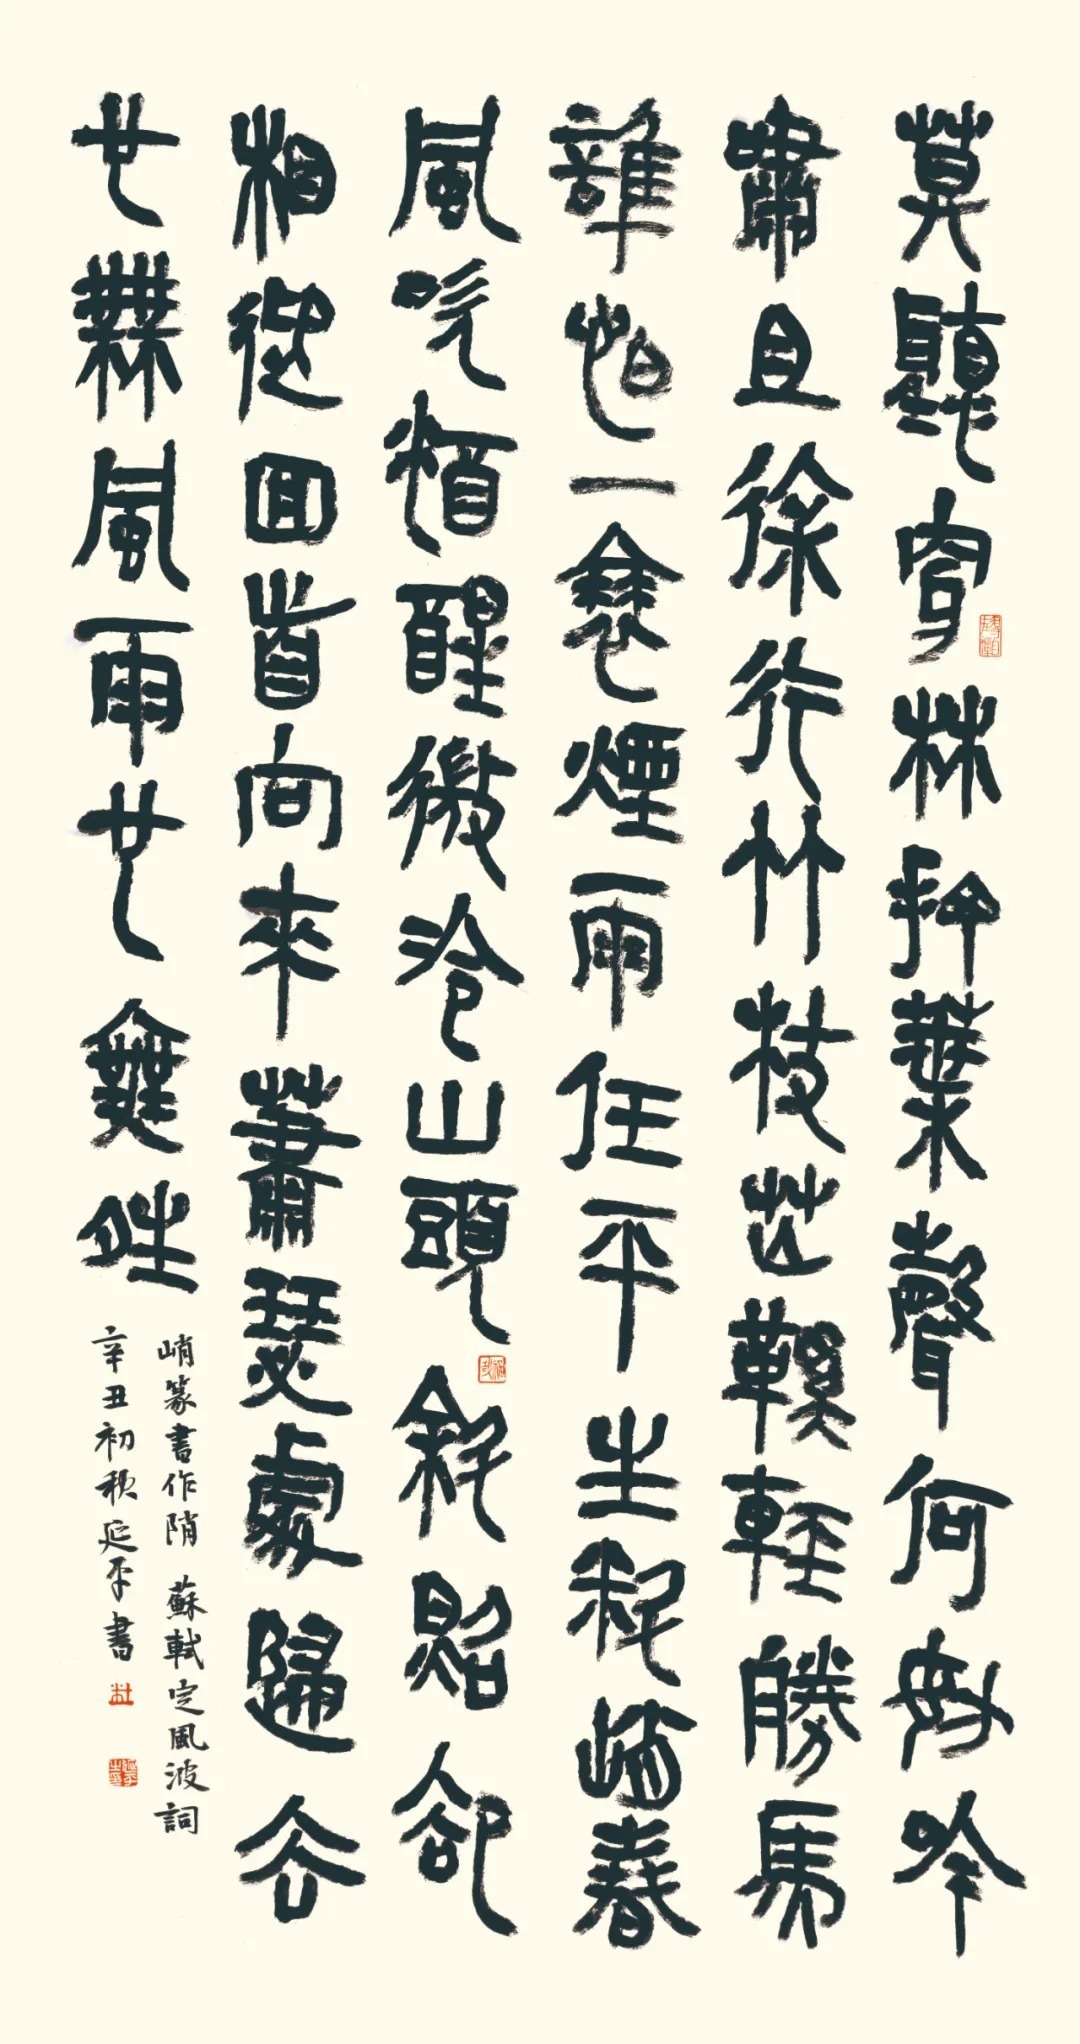 莫聽穿林打葉聲何妨吟
嘯且徐行竹杖芒鞵輕勝馬
誰怕一蓑煙雨任平生料峭春
風吹酒醒微冷山頭斜照卻
相迎回首向來蕭瑟處歸去
也無風雨也無晴
峭篆書作陗 蘇軾定風波詞
辛丑初秋延平書